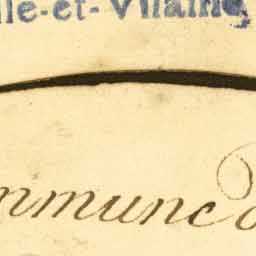 lle-et-Vilaine
mmune d